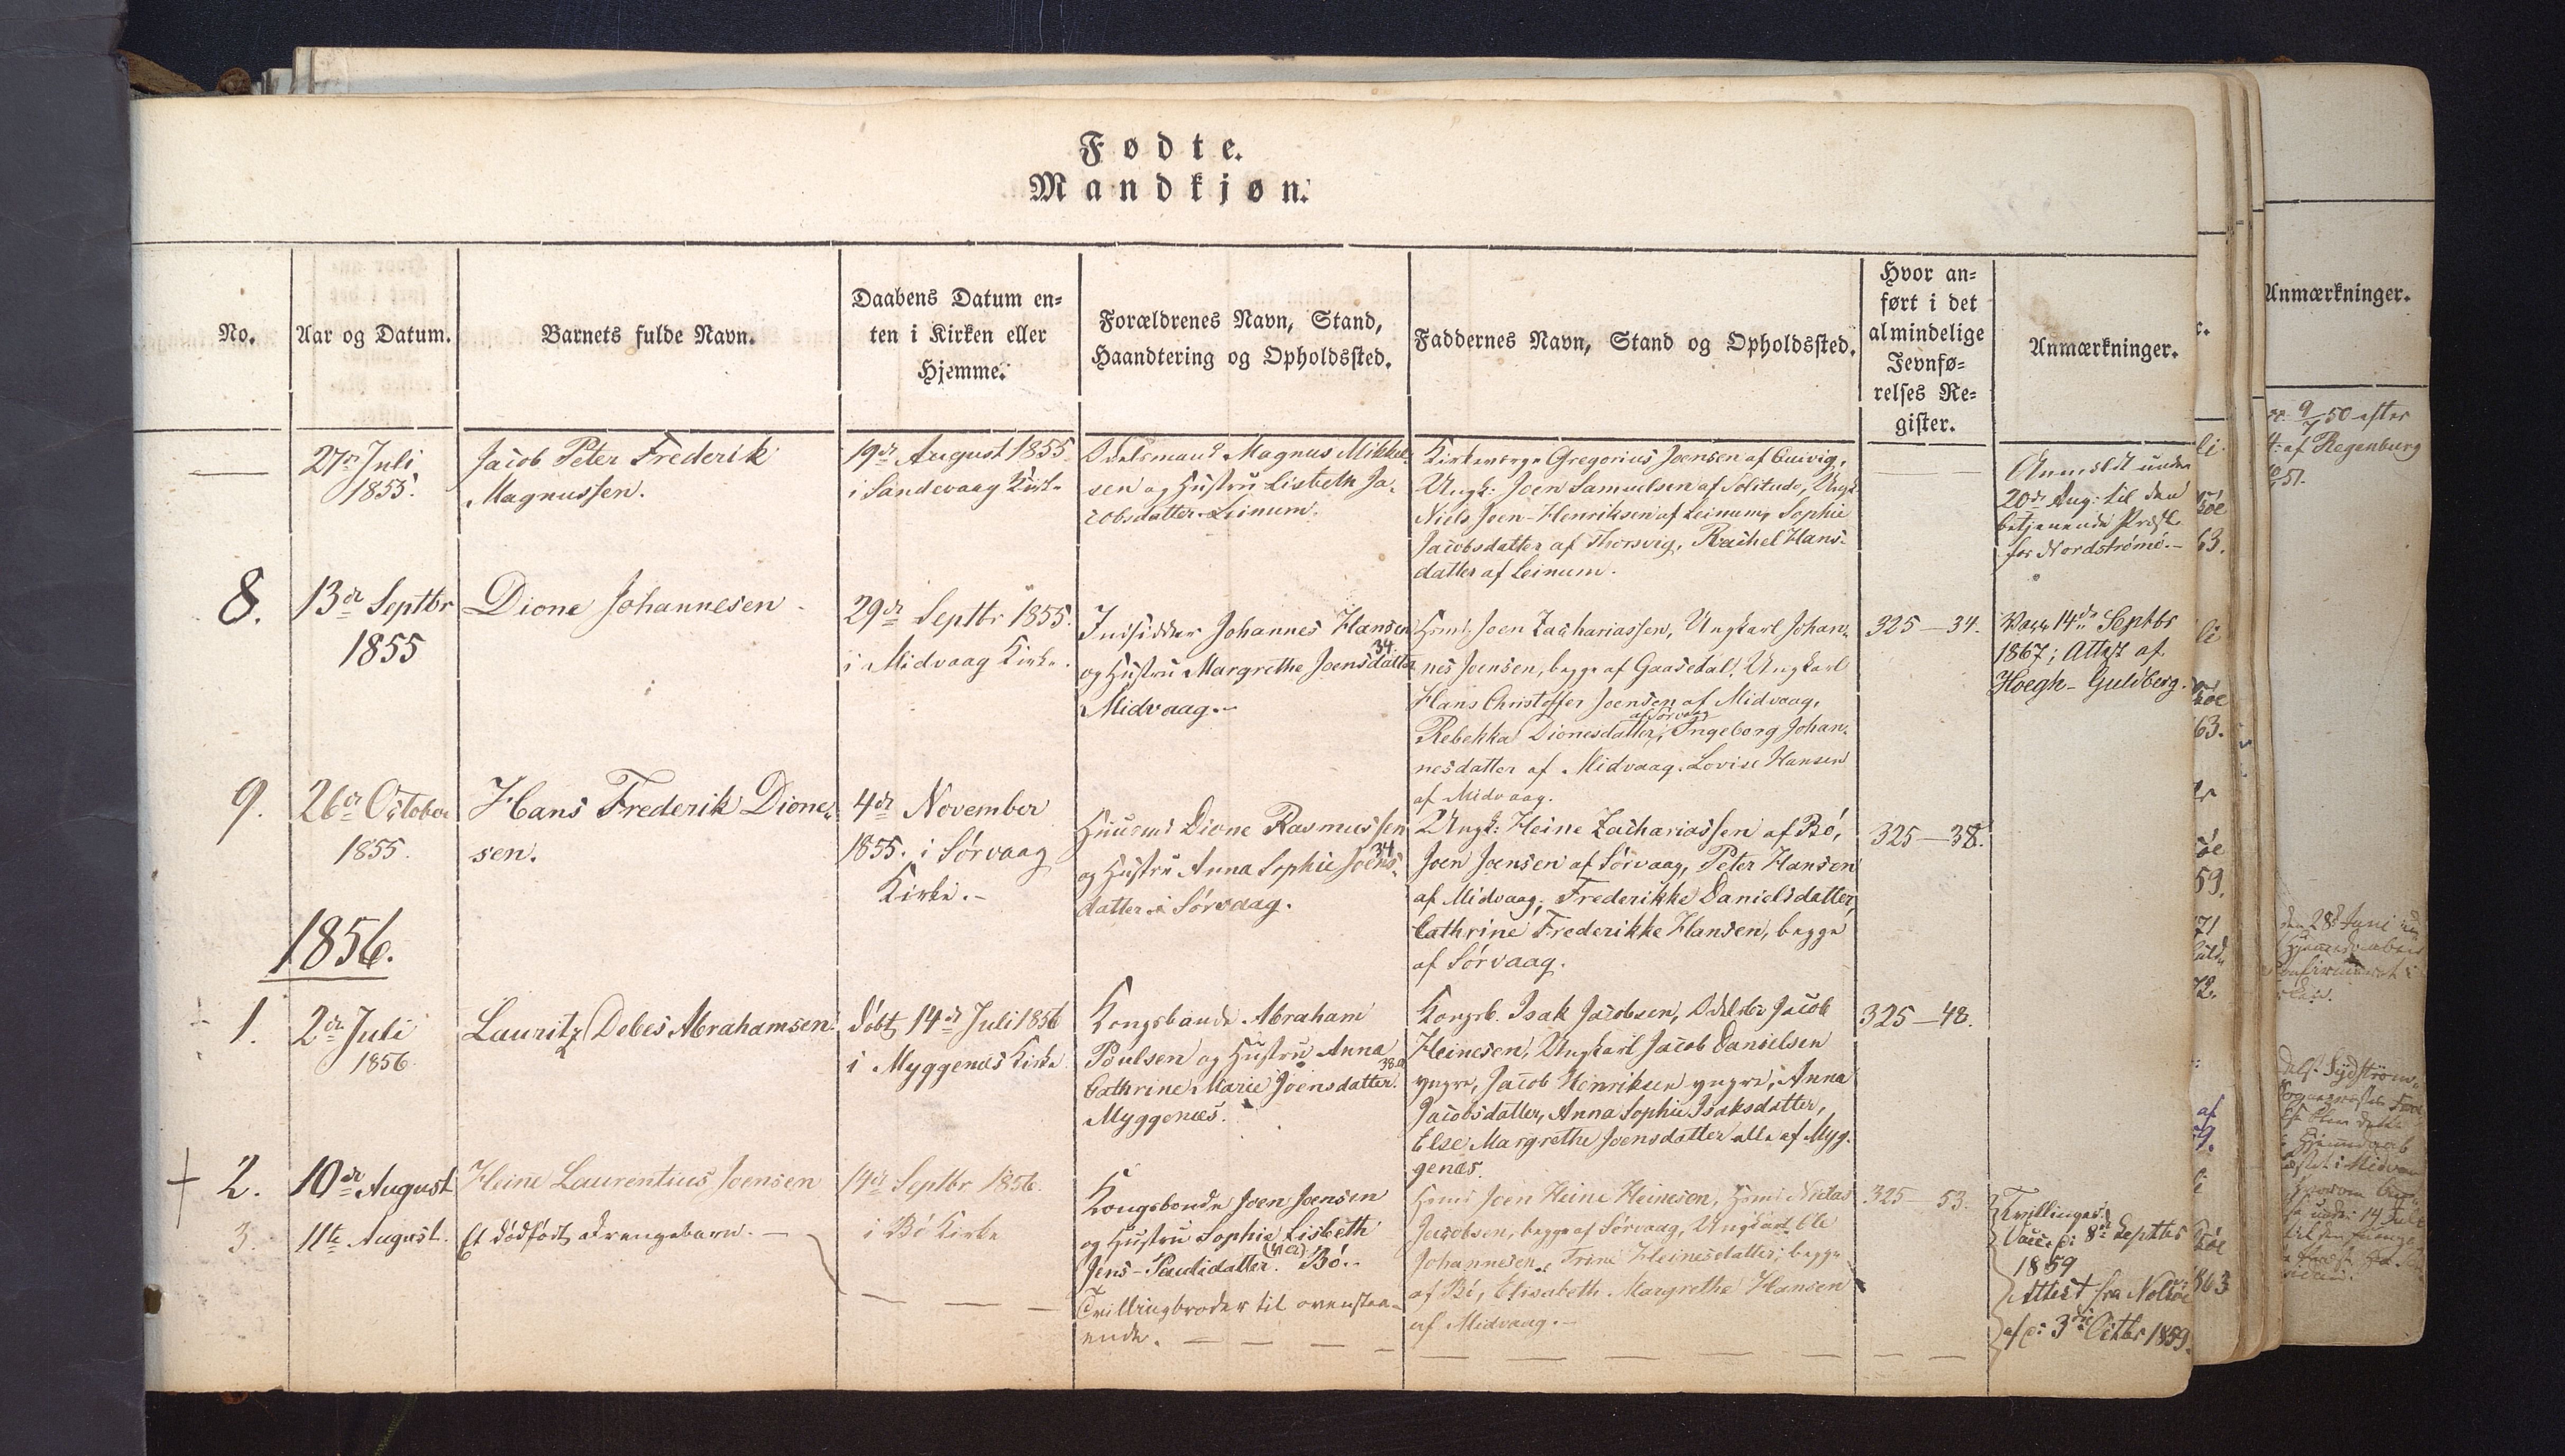 Fødte.
Mandkjøn.
No.
Aar og Datum.
Barnets fulde Navn.
Daabens Datum en-
ten i Kirken eller
Hjemme.
Forældrenes Navn, Stand,
Haandtering og Opholdssted.
Faddernes Navn, Stand og Opholdssted.
Hvor an-
ført i det
almindelige
Jevnfø-
relses Re-
gister.
Anmærkninger.
Anmærkninger.
27de Juli
1855.
Jacob Peter Frederik
Magnussen.
19de August 1855
i Sandevaag Kirke
Odelsmand Magnus Mikkel-
sen og Hustru Lisbeth Ja-
cobsdatter Leinum.
Kirkeværge Gregorius Joensen af Qvivig,
Ungk: Joen Samuelsen af Solitude, Ungk
Niels Joen-Henriksen af Leinum, Sophie
Jacobsdatter af Thorsvig, Rachel Hans-
datter af Leinum.
Anmeldt under
20de Aug: til den
betjenende Præst
for Nordstrømø.-
8.
13de Septbr
1855
Dione Johannesen
29de Septbr 1855.
i Midvaag Kirke.
Indsidder Johannes Hansen
34.
og Hustru Margrethe Joensdatter
Midvaag.-
Hsmd. Joen Zachariassen, Ungkarl Johan-
nes Joensen, begge af Gaasedal, Ungkarl
Hans Christoffer Joensen af Midvaag,
af Sørvaag
Rebekka Dionesdatter, Ingeborg Johan-
nesdatter af Midvaag. Lovise Hansen
af Midvaag.
325-34.
Vacc. 14de Septbr
1867; Attest af
Hoegh-Guldberg.
9.
26de October
1855.
Hans Frederik Dione-
sen.
4de November
1855. i Sørvaag
Kirke.-
Huusmd Dione Rasmussen
34
og Hustru Anna Sophie Joens-
datter i Sørvaag.
Ungk: Heine Zachariassen af Bø,
Joen Joensen af Sørvaag, Peter Hansen
af Midvaag, Frederikke Danielsdatter,
Cathrine Frederikke Hansen, begge
af Sørvaag.
325-38.
1856.
1.
2de Juli
1856
Lauritz Debes Abrahamsen
døbt 14de Juli 1856
i Myggenæs Kirke
Kongsbonde Abraham
Poulsen og Hustru Anna
38a
Cathrine Marie Joensdatter.
Myggenæs.
Kongsb. Isak Jacobsen, Odelsbr Jacob
Heinesen, Ungkarl Jacob Danielsen
yngre, Jacob Henriksen yngre, Anna
Jacobsdatter, Anna Sophie Isaksdatter,
Else Margrethe Joensdatter alle af Myg-
genæs.
325-48.
+ 2.
10de August
Heine Laurentius Joensen
14de Septbr 1856.
i Bø Kirke
Kongsbonde Joen Joensen
og Hustru Sophie Lisbeth
Jens-Paulidatter. Bø.-
Hsmd Joen Heine Heinesen, Hsmd
Jacobsen, begge af Sørvaag, Ungkarl Ole
Johannesen, Trine Heinesdatter, begge
af Bø, Elisabeth Margrethe Hansen
af Midvaag.-
325-53.
Tvillinger.
Vacc. d: 8de Septbr
1859
Attest fra Nolsøe
af d: 3die Octbr 1859.
3.
11te August.
Et dødfødt Drengebarn.-
Tvillingbroder til ovenstaa-
ende.